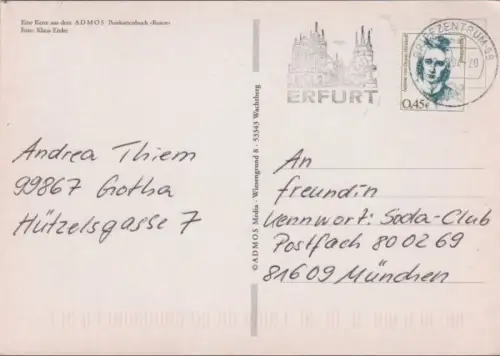 Eine Karte aus dem ADMOS Postkartenbuch »Rosen«
Foto: Klaus Ender
BRIEFZENTRUM 99
ERFURT
0,45€
Andrea Thiem
99867 Gotha
Hützelsgasse 7
© ADMOS Media · Wiesengrund 8 · 53343 Wachtberg
An
freundin
Kennwort: Soda-Club
Postfach 80 02 69
81609 München